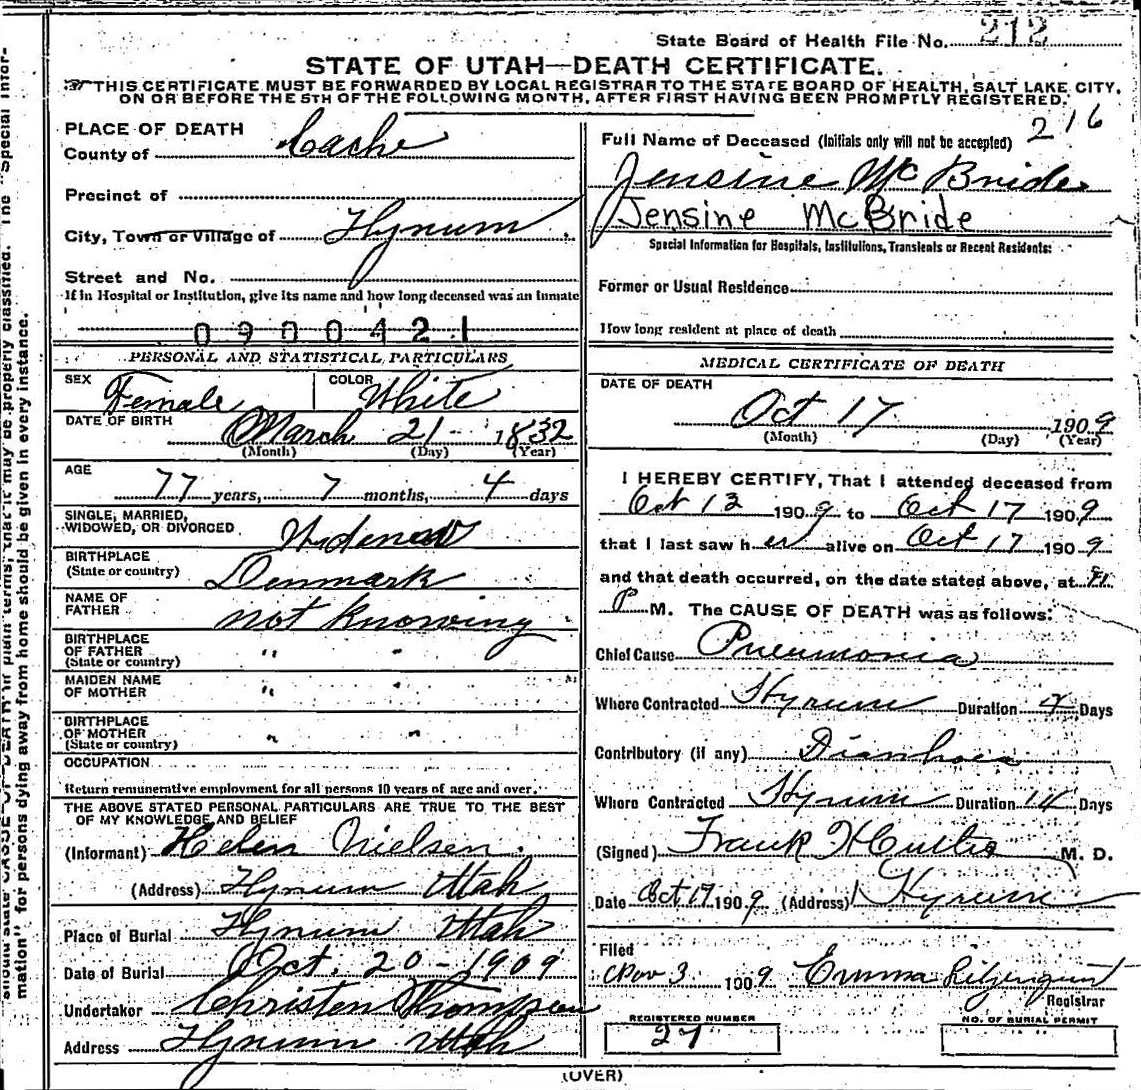 State Board of Health File No. 212
STATE OF UTAH—DEATH CERTIFICATE.
THIS CERTIFICATE MUST BE FORWARDED BY LOCAL REGISTRAR TO THE STATE BOARD OF HEALTH, SALT LAKE CITY,
ON OR BEFORE THE 5TH OF THE FOLLOWING MONTH, AFTER FIRST HAVING BEEN PROMPTLY REGISTERED.
216
PLACE OF DEATH
County of Cache
Precinct of
City, Town or Village of Hyrum
Street and No.
If in Hospital or Institution, give its name and how long deceased was an inmate
0900421
PERSONAL AND STATISTICAL PARTICULARS
SEX Female COLOR White
DATE OF BIRTH March 21 1832
(Month) (Day) (Year)
AGE 77 years, 7 months, 4 days
SINGLE, MARRIED,
WIDOWED, OR DIVORCED
BIRTHPLACE
(State or country) Denmark
NAME OF
FATHER not knowing
BIRTHPLACE
OF FATHER " "
(State or country)
MAIDEN NAME
OF MOTHER " "
BIRTHPLACE
OF MOTHER " "
(State or country)
OCCUPATION
Return remunerative employment for all persons 10 years of age and over.
THE ABOVE STATED PERSONAL PARTICULARS ARE TRUE TO THE BEST
OF MY KNOWLEDGE AND BELIEF
(Informant) Helen Nielsen.
(Address) Hyrum Utah
Place of Burial Hyrum Utah
Date of Burial Oct. 20 - 1909
Undertaker Christen Thompson
Address Hyrum Utah
Full Name of Deceased (Initials only will not be accepted)
Jensine McBride
Jensine McBride
Special Information for Hospitals, Institutions, Transients or Recent Residents:
Former or Usual Residence
How long resident at place of death
MEDICAL CERTIFICATE OF DEATH
DATE OF DEATH
Oct 17 1909
(Month) (Day) (Year)
I HEREBY CERTIFY, That I attended deceased from
Oct 13 1909 to Oct 17 1909
that I last saw her alive on Oct 17 1909
and that death occurred, on the date stated above, at
P M. The CAUSE OF DEATH was as follows:
Chief Cause Pneumonia
Where Contracted Hyrum Duration Days
Contributory (if any) Diarrhoea
Where Contracted Hyrum Duration 14 Days
(Signed) Frank H M. D.
Date Oct 17 1909 (Address) Hyrum
Filed
Nov 3 1909 Emma
Registrar
REGISTERED NUMBER
27
NO. OF BURIAL PERMIT
(OVER)
mation" for persons dying away from home should be given in every instance.